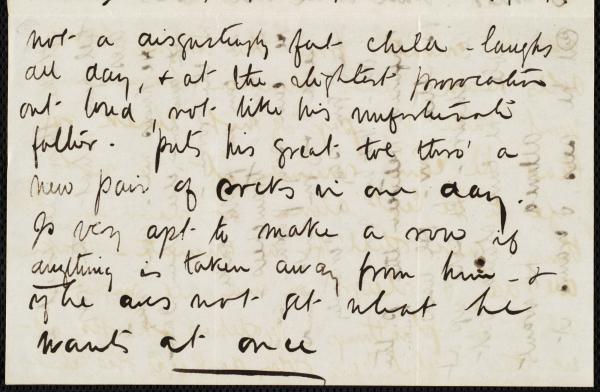 not a disgustingly fat child - laughs
all day, & at the slightest provocation
out loud, not like his unfortunate
father. puts his great toe thro' a
new pair of socks in one day.
Is very apt to make a row if
anything is taken away from him - &
if he does not get what he
wants at once